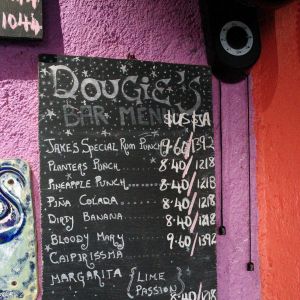 1044
DOUGIE'S
BAR MENU
$US ESA
JAKES SPECIAL RUM PUNCH 9.60/1392
PLANTERS PUNCH ........ 8.40/1218
PINEAPPLE PUNCH ....... 8.40/1218
PIÑA COLADA ........ 8.40/1218
DIRTY BANANA ....... 8.40/1218
BLOODY MARY 9.60/1392
CAIPIRISSMA
MARGARITA { LIME
PASSION } 8.40/1218